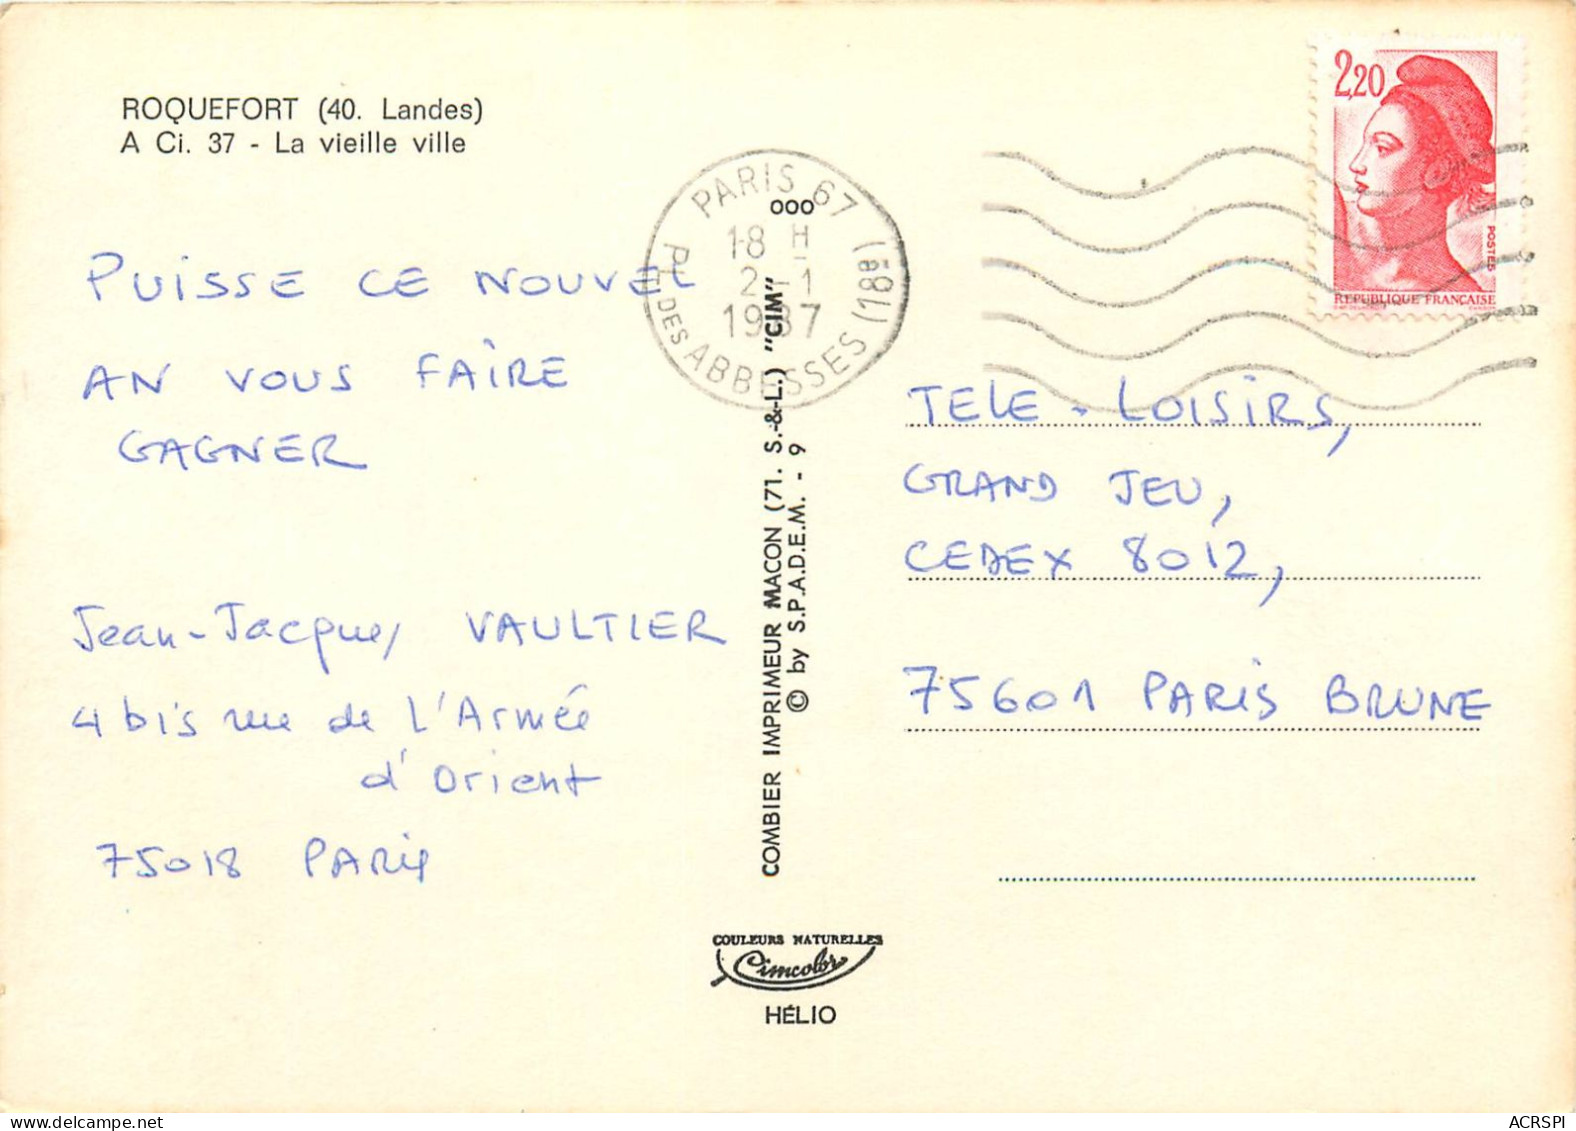 ROQUEFORT (40. Landes)
A Ci. 37 - La vieille ville
PUISSE CE NOUVEL
AN VOUS FAIRE
GAGNER
Jean-Jacques VAULTIER
4 bis rue de L'Armée
d'Orient
75018 PARIS
PARIS 67
18 H
2 - 1
1987
PL. DES ABBESSES (18è)
000
COMBIER IMPRIMEUR MACON (71. S.-&-L.) "CIM"
© by S.P.A.D.E.M. - 9
COULEURS NATURELLES
Cimcolor
HÉLIO
2,20
POSTES
REPUBLIQUE FRANÇAISE
TELE - LOISIRS,
GRAND JEU,
CEDEX 8012,
75601 PARIS BRUNE
ACRSPI